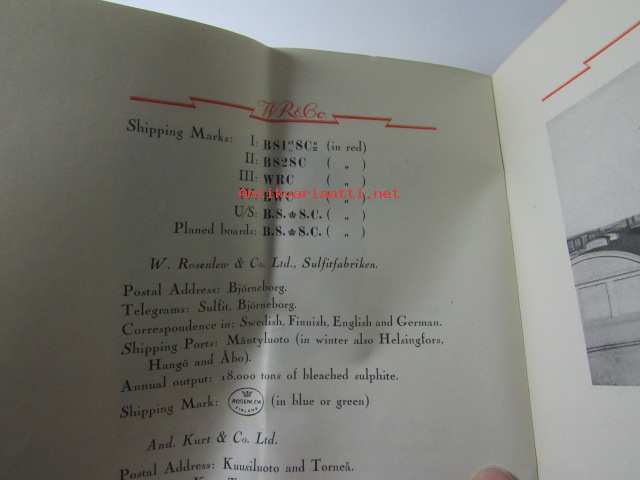 W R & Co.
Shipping Marks: I: BS1st SC (in red)
II: BS2SC ( „ )
III: WRC ( „ )
WC ( „ )
U/S: B.S. S.C. ( „ )
Planed boards: B.S. S.C. ( „ )
W. Rosenlew & Co. Ltd., Sulfitfabriken.
Postal Address: Björneborg.
Telegrams: Sulfit, Björneborg.
Correspondence in: Swedish, Finnish, English and German.
Shipping Ports: Mäntyluoto (in winter also Helsingfors,
Hangö and Åbo).
Annual output: 18.000 tons of bleached sulphite.
Shipping Mark: ROSENLEW FINLAND (in blue or green)
And. Kurt & Co. Ltd.
Postal Address: Kuusiluoto and Torneå.